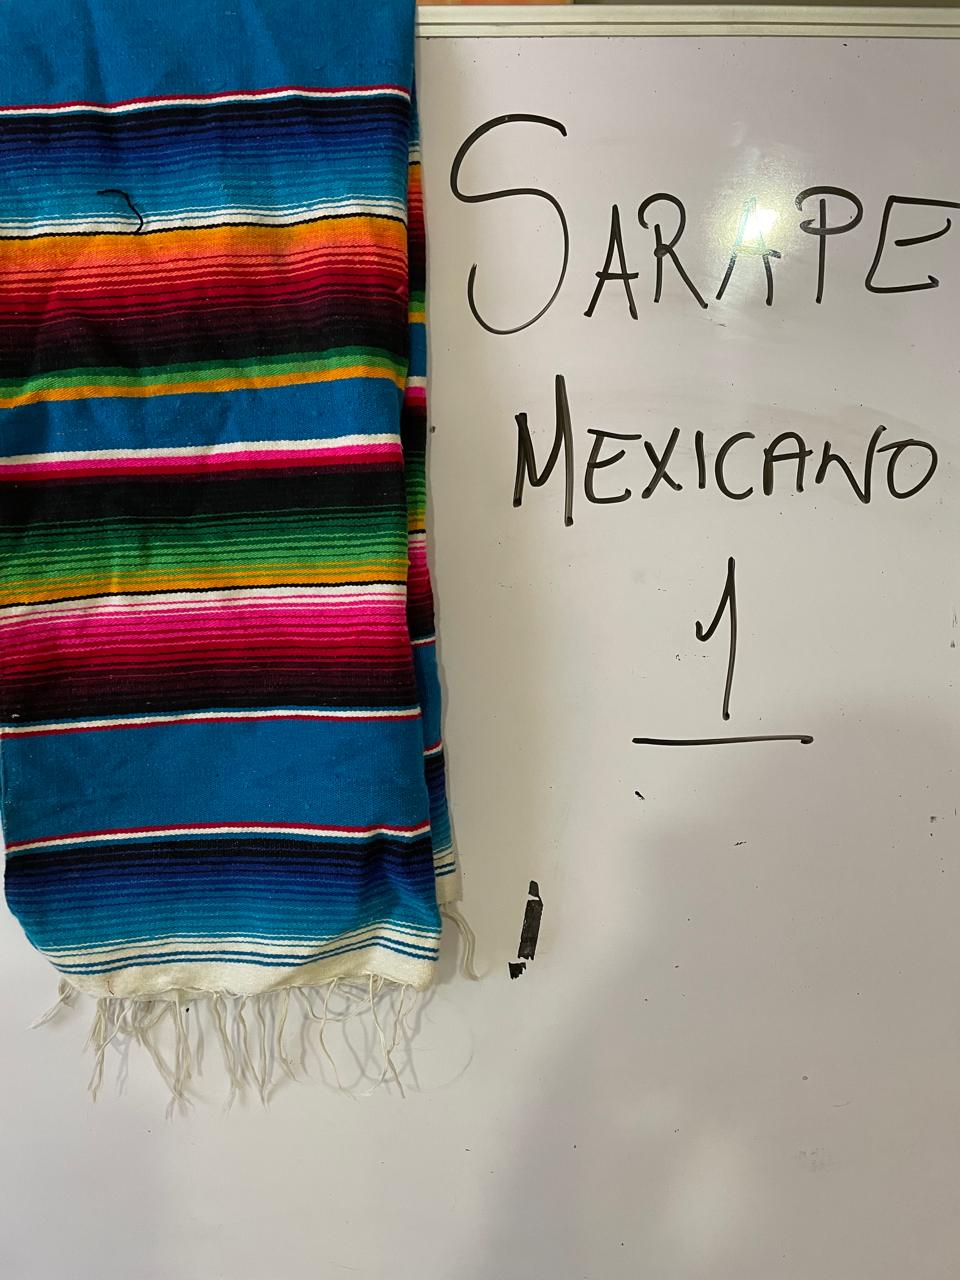 SARAPE
MEXICANO
1